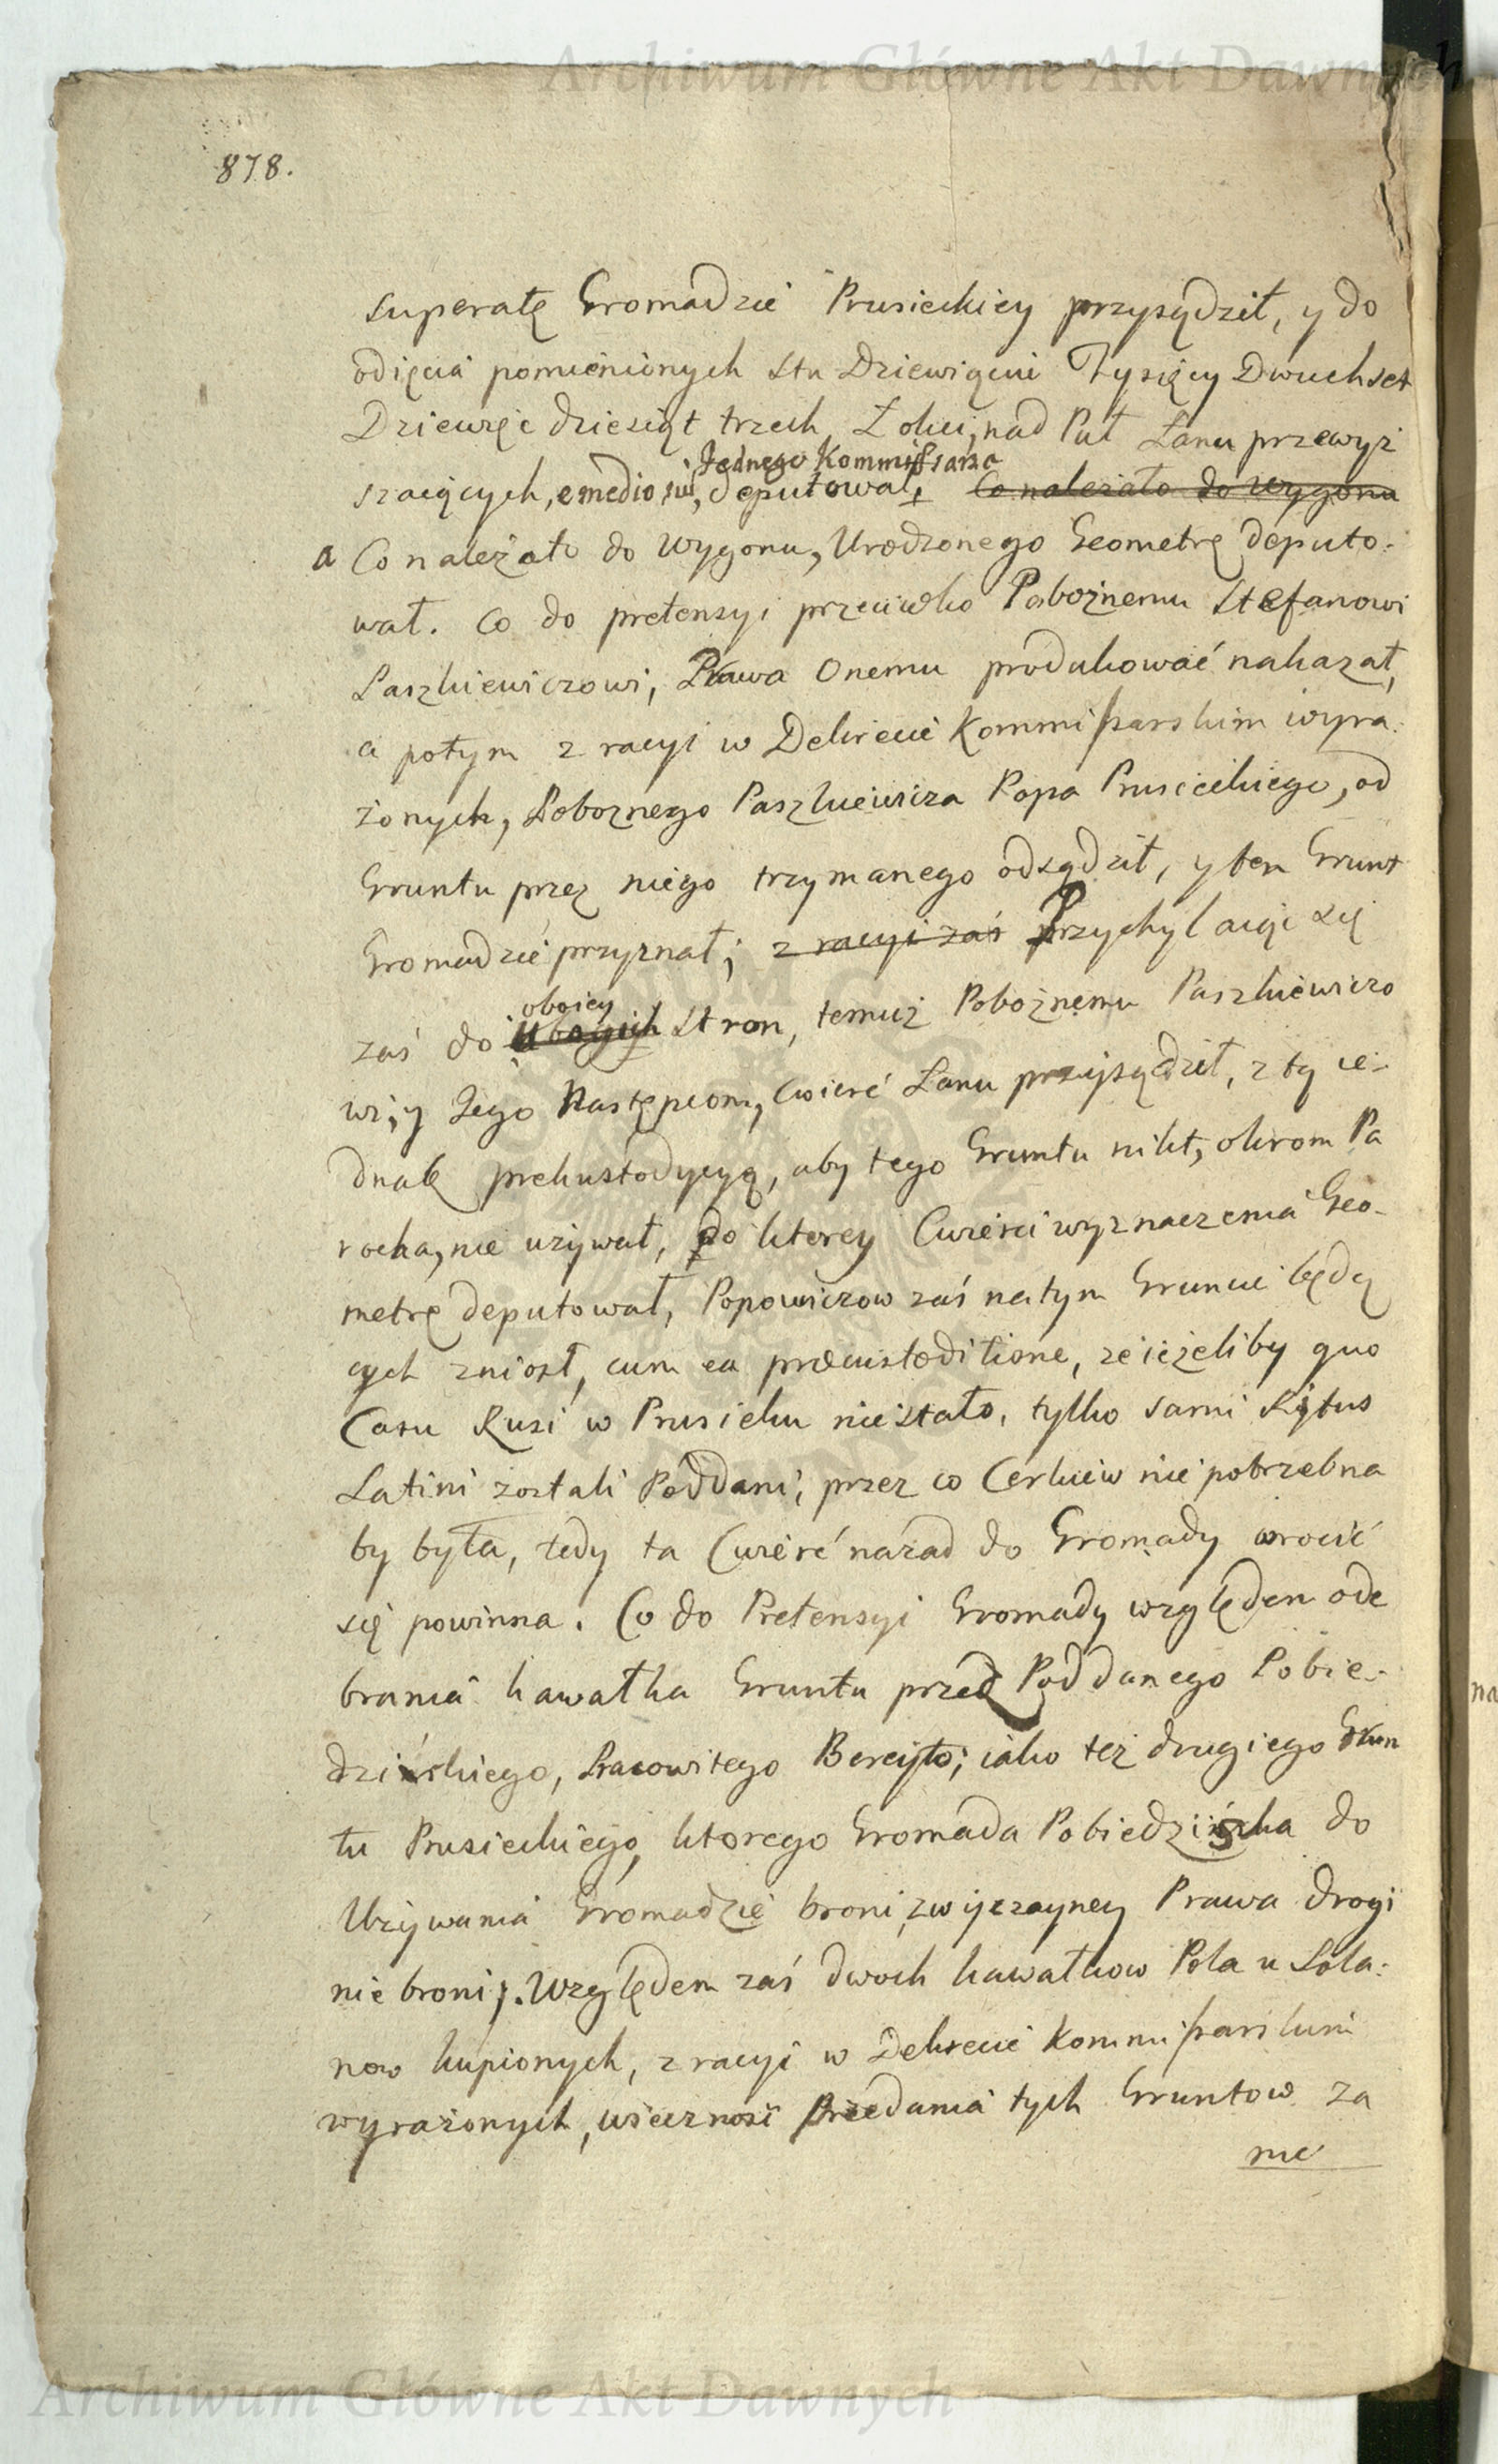 Archiwum Główne Akt Dawnych
878.
superatę Gromadzie Prusieckiey przysądził, y do
odięcia pomienionych Stu Dziewięciu Tysięcy Dwuchset
Dziewięcdziesiąt trzech Łokci, nad Puł Łanu przewyż
Jednego Kommissarza
szaiących, e medio sui, deputował, Co należało do Wygonu
a Co należało do Wygonu, Urodzonego Geometrę deputo-
wał. Co do pretensyi przeciwko Pobożnemu Stefanowi
Paszkiewiczowi, Prawa Onemu produkować nakazał,
a potym z racyi w Dekrecie Kommissarskim wyra-
żonych, Pobożnego Paszkiewicza Popa Prusieckiego, od
Gruntu przez niego trzymanego odsądził, y ten Grunt
Gromadzie przyznał; z racyi zaś Przychylaiąc się
oboiey
zaś do Stron, temuż Pobożnemu Paszkiewiczo
wi, y Jego Następcom, Cwierć Łanu przysądził, z tą ie-
dnak prekustodycyą, aby tego Gruntu nikt, okrom Pa
rocha, nie używał, do ktorey Cwierci wyznaczenia Geo-
metrę deputował, Popowiczow zaś na tym Gruncie będą
cych zniosł, cum ea præcustoditione, że ieżeliby quo
Casu Rusi w Prusieku niestało, tylko sami Ritus
Latini zostali Poddani, przez co Cerkiew nie potrzebna
by była, tedy ta Cwierć nazad do Gromady wrocić
się powinna. Co do Pretensyi Gromady względem ode
brania kawałka Gruntu przed Poddanego Pobie-
dzińskiego, Pracowitego Bereyto; iako też drugiego Grun
tu Prusieckiego, ktorego Gromada Pobiedzińska do
Używania Gromadzie broni, zwyczayney Prawa drogi
nie broni. Względem zaś dwoch kawałkow Pola u Sola-
now kupionych, z racyi w Dekrecie Kommissarskim
wyrażonych, wieczność Przedania tych Gruntow za
nie
na
Archiwum Główne Akt Dawnych